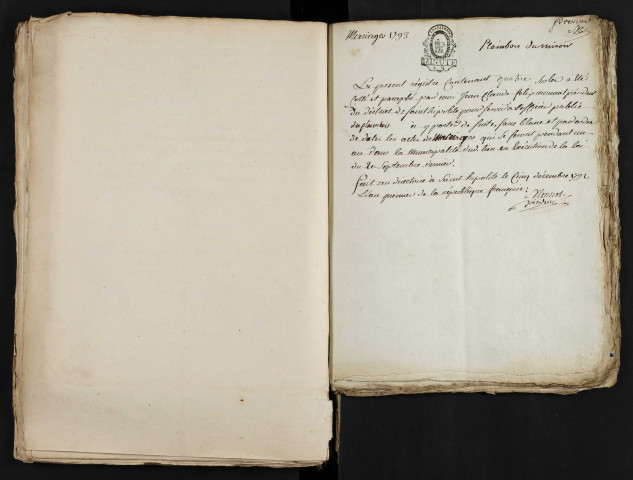 Mariages 1793
Plambois du miroir
Le present régistre Contenant quatre feuilles a été
Cotté et paraphé par moi Jean Claude président
du district de Saint hipolite pour servir à l'officier public
de plambois à y porter de suite, sans blanc et par ordre
de date les actes de mariages qui se feront pendant un
an dans la municipalité dud. lieu en Exécution de la loi
du 20 Septembre dernier.
fait en directoire à Saint hipolite le Cinq décembre 1792
L'an premier de la république françoise.